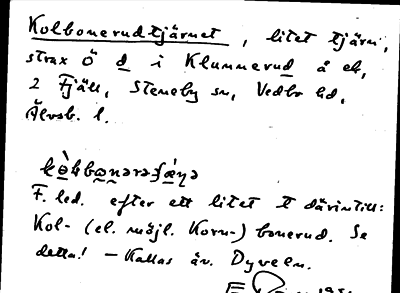 Kolbonerudtjärnet, litet tjärn,
strax Ö d i Klunnerud å ek,
2 Fjäll, Steneby sn, Vedbo hd,
Älvsb. l.
F. led. efter ett litet t därintill:
Kol- (el. möjl. Korn-) bonerud. Se
detta! — Kallas äv. Dyveln.